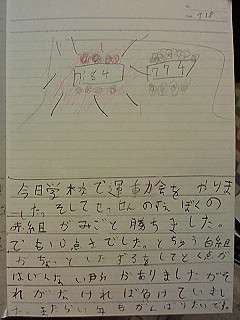 784
774
今日学校で運動会をやりま
した。そしてせっせんのすえぼくの
赤組がみごと勝ちました。
でも10点さでした。とちゅう白組
がちょっとしたずるをしてとく点が
はいんない
がありましたがそ
れがなければ負けていまし
た。またらい年もがんばりたいです。